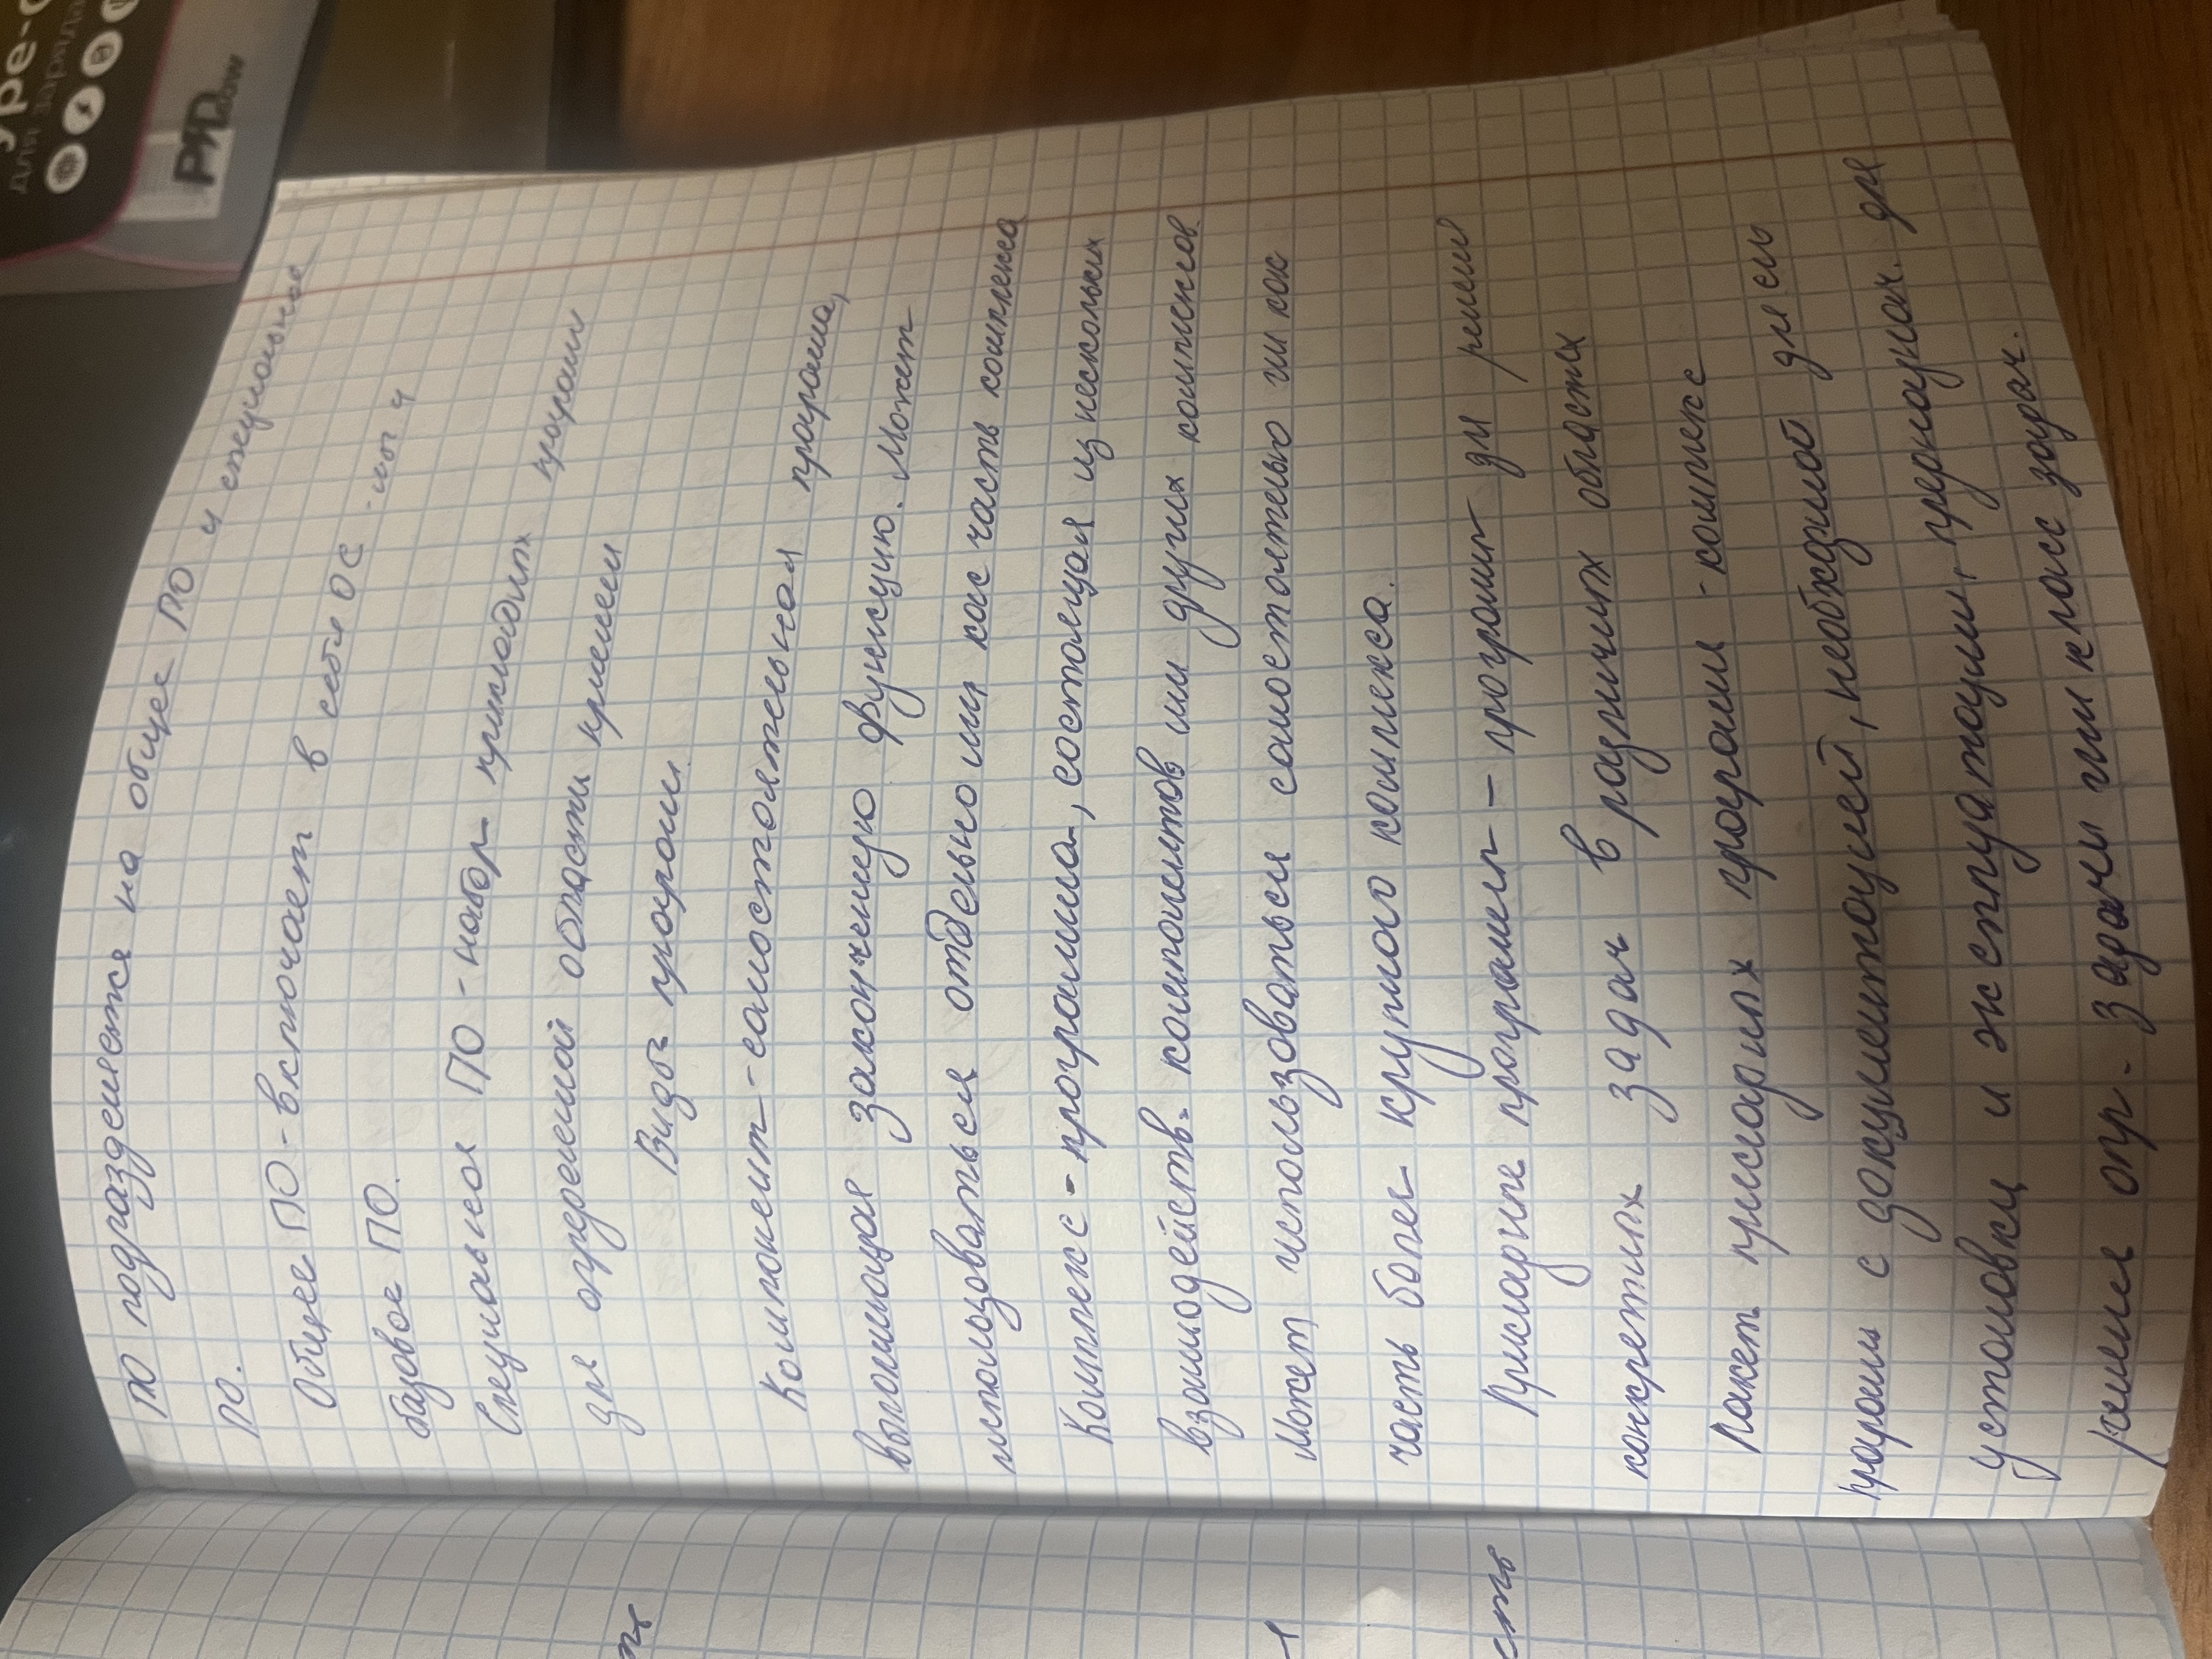 ПО подразделяется на общее ПО и специальное
ПО.
Общее ПО - включает в себя ОС
базовое ПО.
Специальное ПО - набор прикладных програм
для определеной области
Виды програм.
Компонент - самостоятельная програма,
выполняющая законченную функцию. Может
использоваться отдельно или как часть комплекса
Комплекс - программа, состоящая из нескольких
взаимодейств. компонентов или других
Может использоваться самостоятельно или как
часть более крупного комплекса.
программы - програмы для решения
конкретных задач в различных областях
Пакет програм - комплекс
програм с документацией, необходимой для
установки и эксплуатации, для
решения опр. задачи или класс задач.
для зарядки
PMD